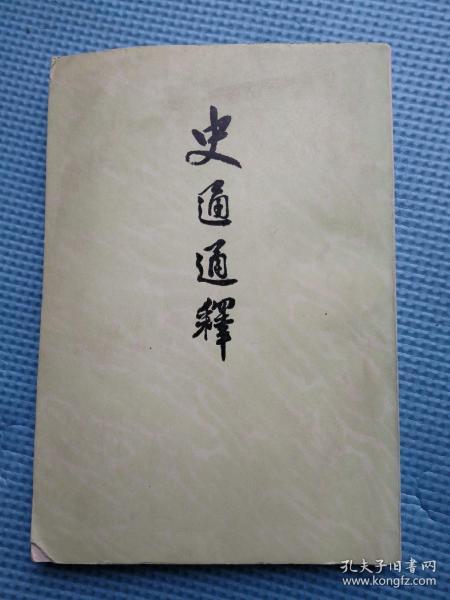 史通通釋
孔夫子旧书网
www.kongfz.com